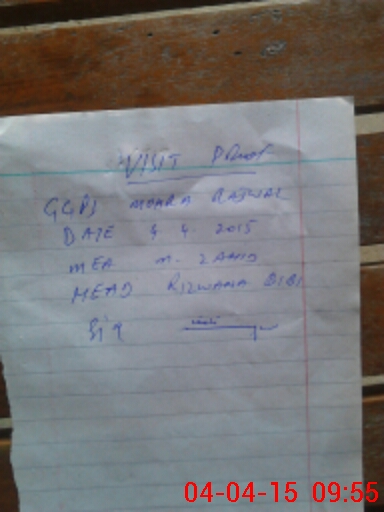 VISIT Proof
GGPS MOHRA RAJWAL
DATE 4 4. 2015
MEA M. ZAHID
HEAD RIZWANA BIBI
Sig
04-04-15 09:55